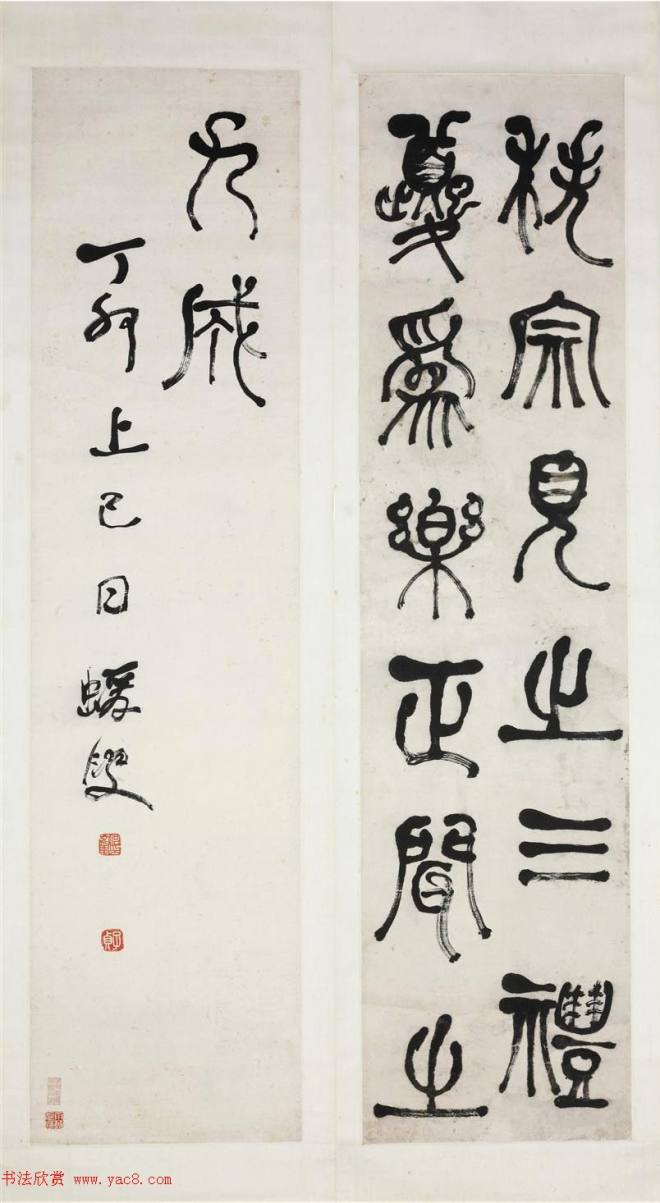 秩宗見之三禮
夔爲樂正聞之
九成
丁卯上巳日蝯叟
子貞
书法欣赏 www.yac8.com